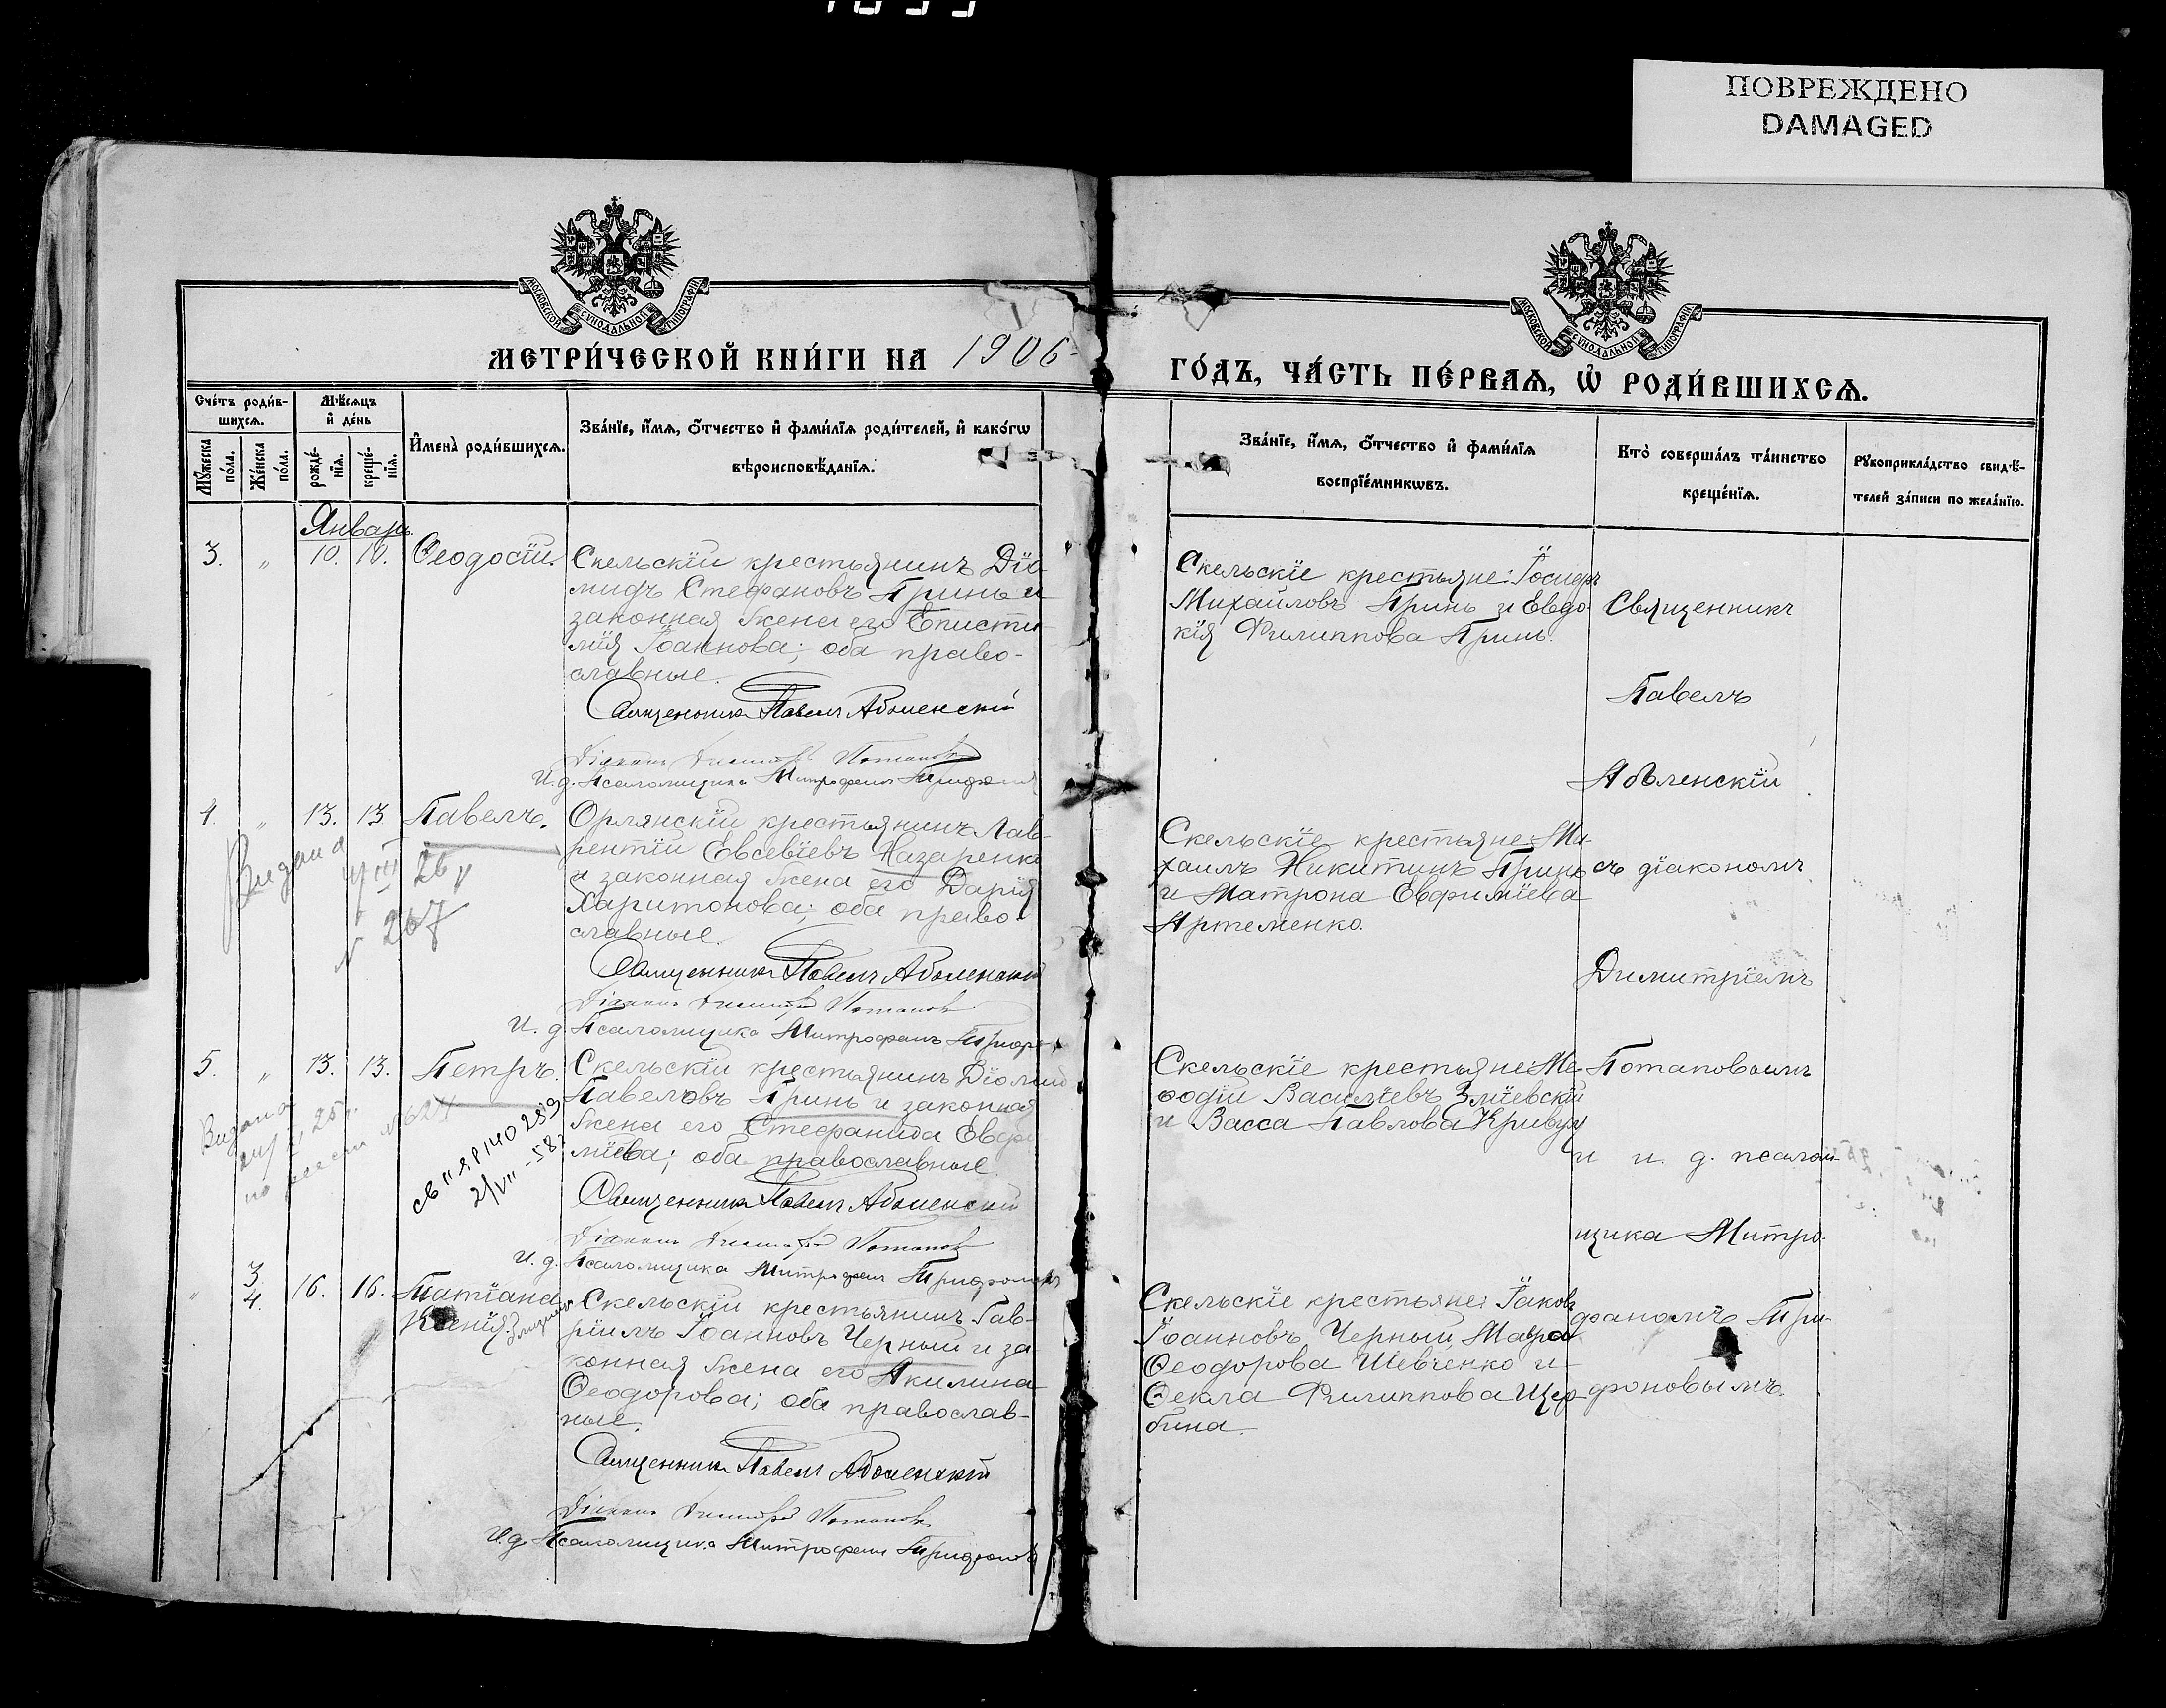 ПОВРЕЖДЕНО
DAMAGED
МОСКОВСКОЙ СУНОДАЛЬНОЙ ТИПОГРАФІИ
МОСКОВСКОЙ СУНОДАЛЬНОЙ ТИПОГРАФІИ
МЕТРИ́ЧЕСКОЙ КНИ́ГИ НА 1906
ГО́ДЪ, ЧА́СТЬ ПЕ́РВАѦ, Ѽ РОДИ́ВШИХСѦ.
Сче́тъ роди́в-
шихсѧ.
Мꙋ́жеска по́ла.
Же́нска по́ла.
Мѣ́сѧцъ
и҆ де́нь
рожде́-нїѧ.
креще́-нїѧ.
И҆мена̀ роди́вшихсѧ.
Зва́нїе, и҆́мѧ, ѻ҆́тчество и҆ фами́лїѧ роди́телей, и҆ како́гѡ
вѣроисповѣ́данїѧ.
Зва́нїе, и҆́мѧ, ѻ҆́тчество и҆ фами́лїѧ
воспрїе́мникѡвъ.
Кто̀ соверша́лъ та́инство
креще́нїѧ.
Рꙋкоприкла́дство свидѣ́-
телей за́писи по жела́нїю.
Январь.
3. „ 10. 10. Ѳеодосій. Скельскій крестьянинъ Діо-
мидъ Стефановъ Гринь и
законная жена его Еписти-
мія Іоаннова; оба право-
славные.
Священникъ Павелъ Аболенскій
Діаконъ Димитрій Потаповъ
И. д. Псаломщика Митрофанъ Трифоновъ
Скельскіе крестьяне: Іосифъ
Михайловъ Гринь и Евдо-
кія Филиппова Гринь.
Священникъ
Павелъ
Аболенскій
4. „ 13. 13 Павелъ. Орлянскій крестьянинъ Лав-
рентій Евсевіевъ Назаренко
и законная жена его Дарія
Харитонова; оба право-
славные.
Видана
26
№ 267
Священникъ Павелъ Аболенскій
Діаконъ Димитрій Потаповъ
И. д. Псаломщика Митрофанъ Трифо
Скельскіе крестьяне: Ми-
хаилъ Никитинъ Гринь
и Матрона Евфиміева
Артеменко.
съ діакономъ
Димитріемъ
5. „ 13. 13. Петръ. Скельскій крестьянинъ Діомид
Павеловъ Гринь и законная
жена его Стефанида Евфи
міева; оба православные.
Видана
25
СВ II ЯР 140289
2/VII-58
Священникъ Павелъ Аболенскій
Діаконъ Димитрій Потаповъ
И. д. Псаломщика Митрофанъ Трифоновъ
Скельскіе крестьяне: Ме-
ѳодій Василіевъ Зміевскій
и Васса Павлова Кривуц
Потаповымъ
и и. д. псалом-
щика Митро-
„ 3. 4. 16. 16. Татіана
Ксенія
Скельскій крестьянинъ Гав-
ріилъ Іоанновъ Черный и за-
конная жена его Акилина
Ѳеодорова; оба православ-
ные.
Священникъ Павелъ Аболенскій
Діаконъ Димитрій Потаповъ
И. д. Псаломщика Митрофанъ Трифоновъ
Скельскіе крестьяне: Іаковъ
Іоанновъ Черный, Мавра
Ѳеодорова Шевченко и
Ѳекла Филиппова Щер-
бина.
фаномъ Три-
фоновымъ.